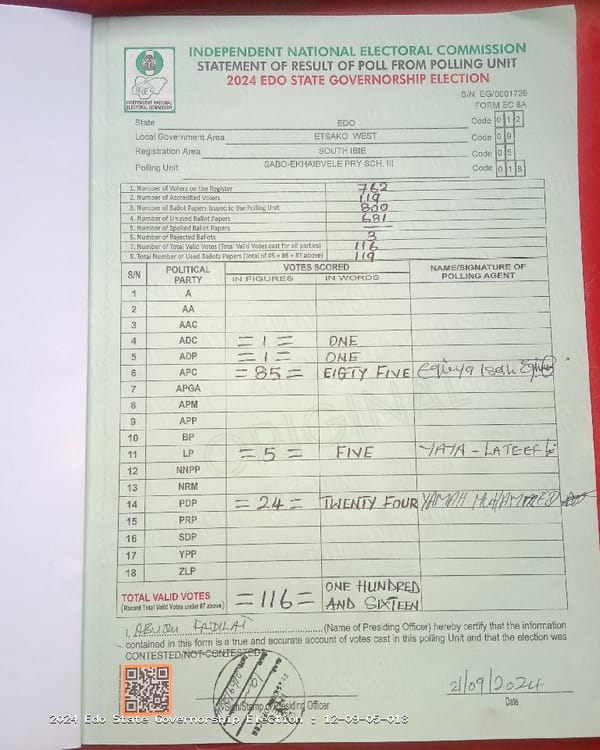 INDEPENDENT NATIONAL ELECTORAL COMMISSION
STATEMENT OF RESULT OF POLL FROM POLLING UNIT
2024 EDO STATE GOVERNORSHIP ELECTION
INEC
INDEPENDENT NATIONAL ELECTORAL COMMISSION
S/N. EG/0001726
FORM EC 8A
State EDO Code 0 1 2
Local Government Area ETSAKO WEST Code 0 9
Registration Area SOUTH IBIE Code 0 5
Polling Unit SABO-EKHAIBVELE PRY SCH. III Code 0 1 8
1. Number of Voters on the Register 762
2. Number of Accredited Voters 119
3. Number of Ballot Papers Issued to the Polling Unit 800
4. Number of Unused Ballot Papers 681
5. Number of Spoiled Ballot Papers —
6. Number of Rejected Ballots 3
7. Number of Total Valid Votes (Total Valid Votes cast for all parties) 116
8. Total Number of Used Ballots Papers (Total of #5 + #6 + #7 above) 119
S/N POLITICAL PARTY VOTES SCORED NAME/SIGNATURE OF POLLING AGENT
IN FIGURES IN WORDS
1 A
2 AA
3 AAC
4 ADC = 1 = ONE
5 ADP = 1 = ONE
6 APC = 85 = EIGTY FIVE
7 APGA
8 APM
9 APP
10 BP
11 LP = 5 = FIVE YAYA - LATEEF
12 NNPP
13 NRM
14 PDP = 24 = TWENTY FOUR YAMAH MUHAMMED
15 PRP
16 SDP
17 YPP
18 ZLP
ORIGINAL
TOTAL VALID VOTES = 116 = ONE HUNDRED AND SIXTEEN
(Record Total Valid Votes under #7 above)
I, ABUDU FADILAT (Name of Presiding Officer) hereby certify that the information
contained in this form is a true and accurate account of votes cast in this polling Unit and that the election was
CONTESTED/NOT CONTESTED
21/09/2024
Sign/Stamp of Presiding Officer Date
2024 Edo State Governorship Election : 12-09-05-018